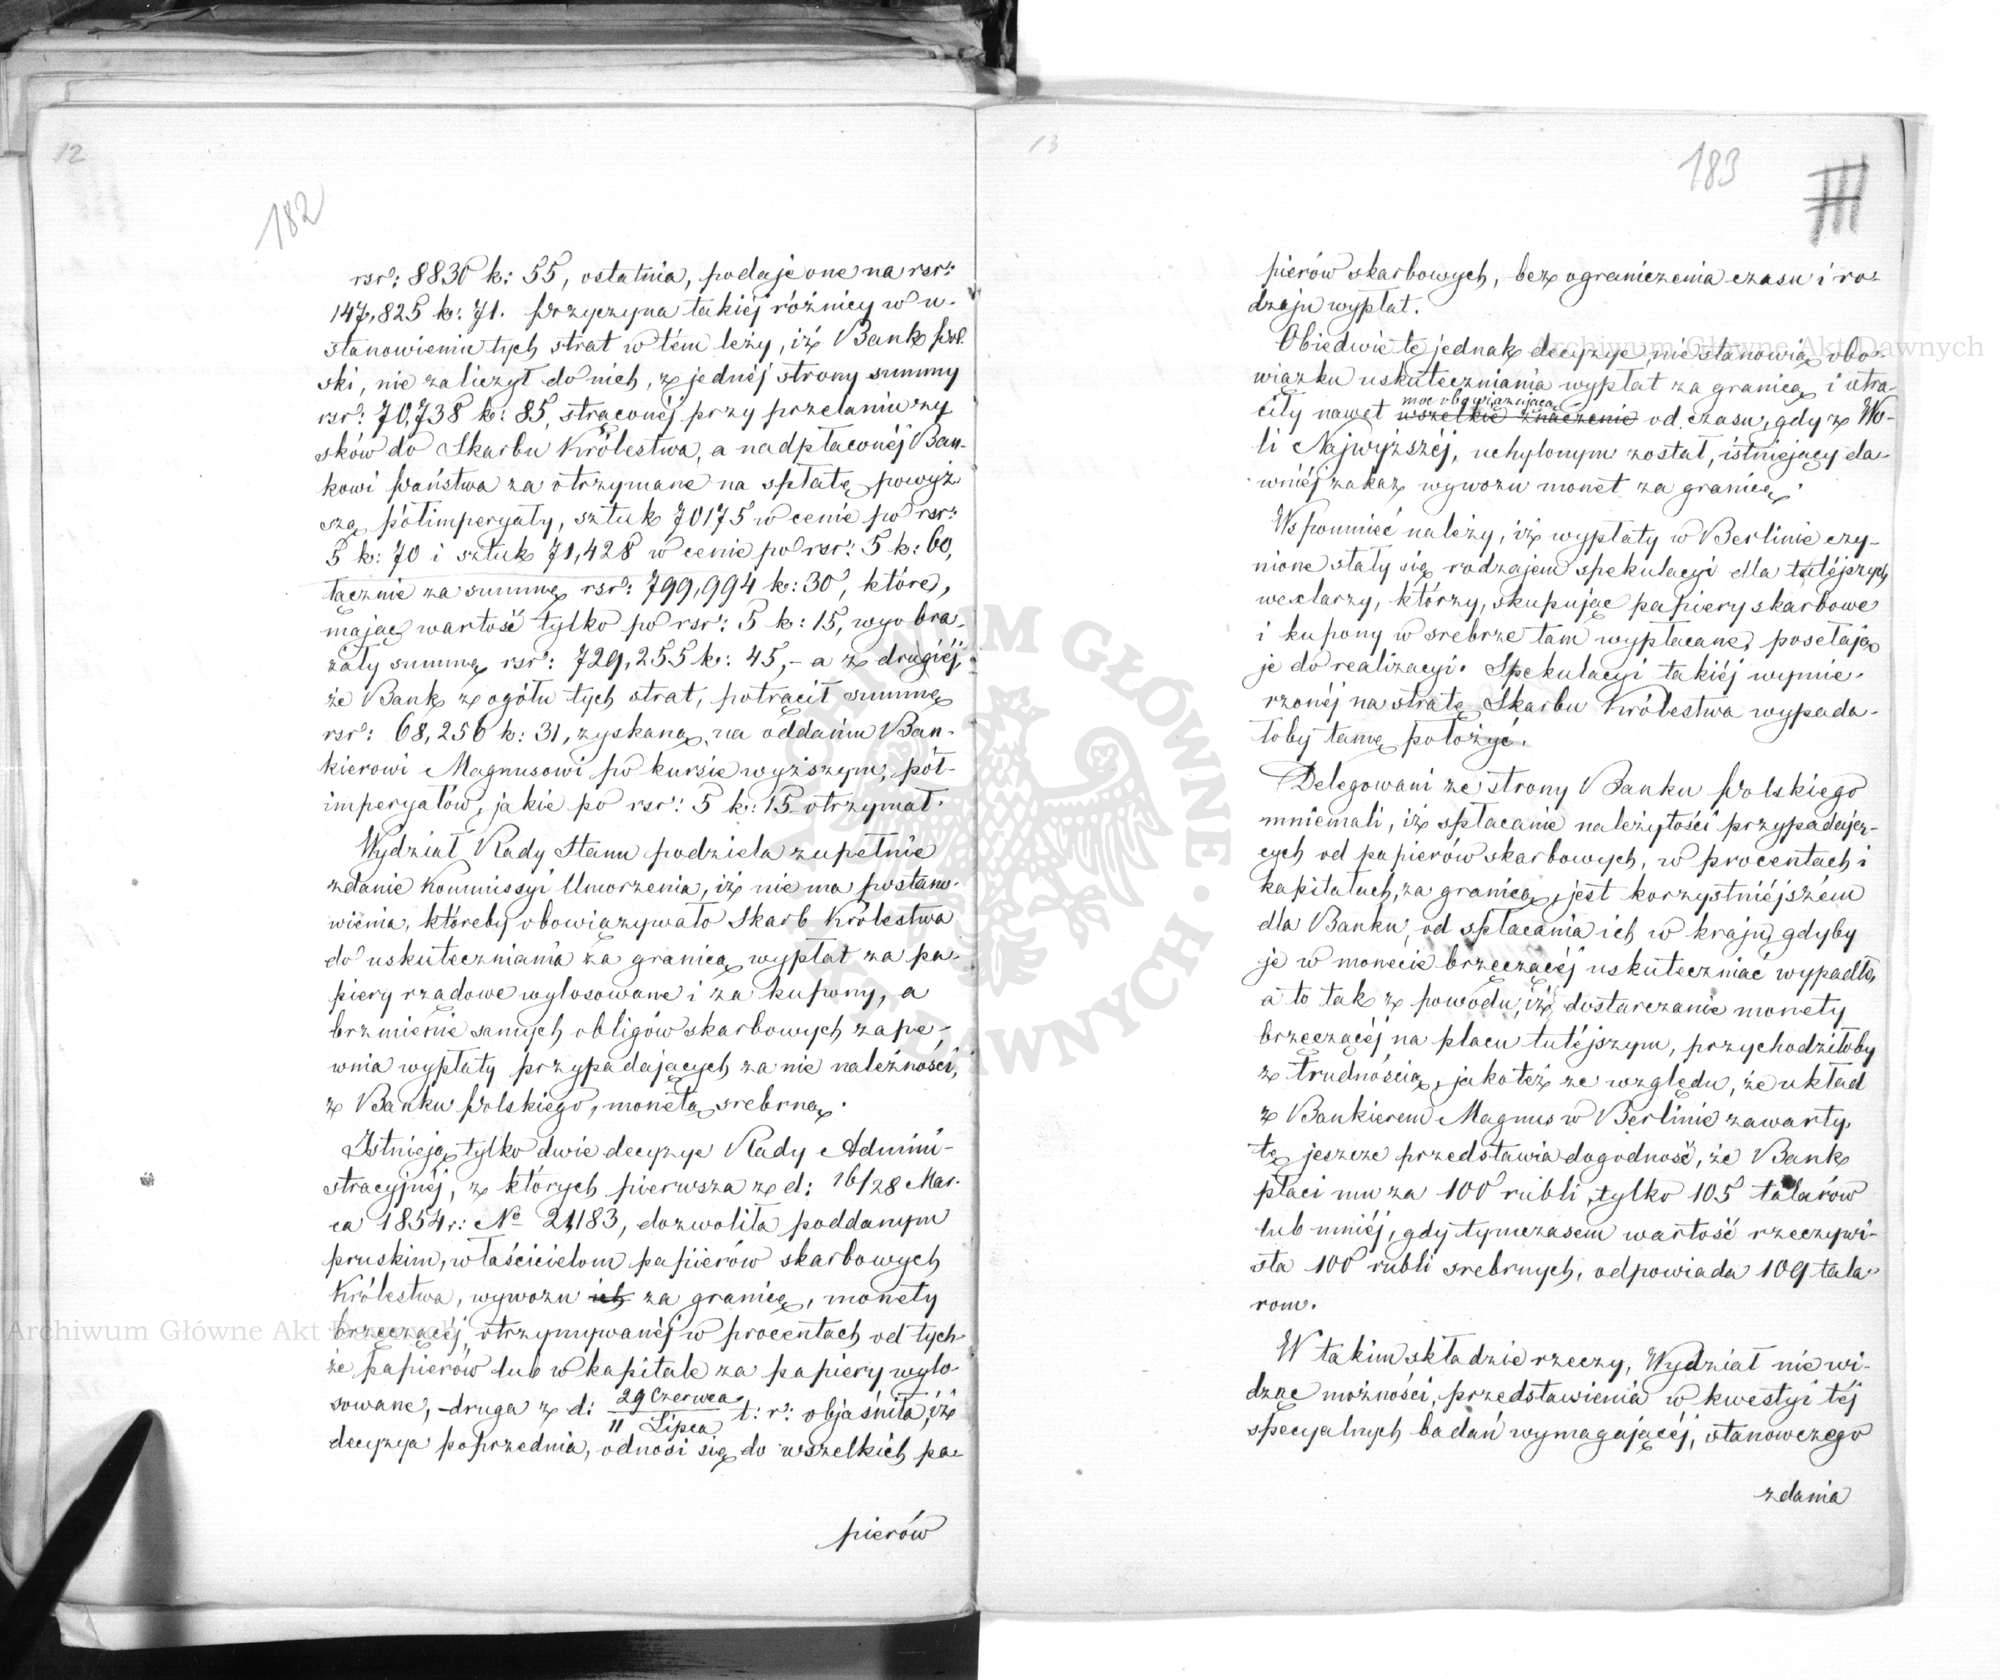 12
182
rsr: 8830 k: 55, ostatnia, podaje one na rsr:
147,825 k: 71. Przyczyna takiéj różnicy w u-
stanowieniu tych strat w tém leży, iż Bank Pol-
ski, nie zaliczył do nich, z jednéj strony summy
rsr: 70,738 k: 85, straconéj przy przelaniu zy-
sków do Skarbu Królestwa, a nadpłaconéj Ban-
kowi Państwa za otrzymane na spłatę powyż-
szą półimperyały, sztuk 70175 w cenie po rsr:
5 k: 70 i sztuk 71,428 w cenie po rsr: 5 k: 60,
łącznie za summę rsr: 799,994 k: 30, które,
mając wartość tylko po rsr: 5 k: 15, wyobra-
żały summę rsr: 729,255 k: 45,- a z drugiéj,
że Bank z ogółu tych strat, potrącił summę
rsr: 68,256 k: 31, zyskaną na oddaniu Ban-
kierowi Magnusowi po kursie wyższym, pół-
imperyałów, jakie po rsr: 5 k: 15 otrzymał.
Wydział Rady Stanu podziela zupełnie
zdanie Kommissyi Umorzenia, iż nie ma postano-
wienia, któreby obowiązywało Skarb Królestwa
do uskuteczniania za granicą wypłat za pa-
piery rządowe wylosowane i za kupony, a
brzmienie samych obligów skarbowych zape-
wnia wypłaty przypadających za nie należności,
z Banku Polskiego, monetą srebrną.
Istnieją tylko dwie decyzye Rady Admini-
stracyjnéj, z których pierwsza z d: 16/28 Mar-
ca 1854 r: No 21183, dozwoliła poddanym
pruskim, właścicielom papierów skarbowych
Królestwa, wywozu ich za granicę, monety
brzęczącéj otrzymywanéj w procentach od tych-
że papierów lub w kapitale za papiery wylo-
sowane, - druga z d: 29 Czerwca/11 Lipca t: r: objaśniła, iż
decyzya poprzednia, odnosi się do wszelkich pa-
pierów
13
183
III
pierów skarbowych, bez ograniczenia czasu i ro-
dzaju wypłat.
Obiedwie te jednak decyzye, nie stanowią obo-
wiązku uskuteczniania wypłat za granicą i utra-
moc obowiązującą
ciły nawet wszelkie znaczenie od czasu, gdy z Wo-
li Najwyższéj, uchylonym został, istniejący da-
wniéj zakaz wywozu monet za granicę.
Wspomnieć należy, iż wypłaty w Berlinie czy-
nione stały się rodzajem spekulacyi dla tutéjszych
wexlarzy, którzy, skupując papiery skarbowe
i kupony w srebrze tam wypłacane, posełają
je do realizacyi. Spekulacyi takiéj wymie-
rzonéj na stratę Skarbu Królestwa wypada-
łoby tamę położyć.
Delegowani ze strony Banku Polskiego
mniemali, iż spłacanie należytości przypadają-
cych od papierów skarbowych, w procentach i
kapitałach, za granicą, jest korzystniéjszém
dla Banku, od spłacania ich w kraju, gdyby
je w monecie brzęczącéj uskuteczniać wypadło,
a to tak z powodu, iż dostarczanie monety
brzęczącéj na placu tutéjszym, przychodziłoby
z trudnością, jakoteż ze względu, że układ
z Bankierem Magnus w Berlinie zawarty,
tę jeszcze przedstawia dogodność, że Bank
płaci mu za 100 rubli, tylko 105 talarów
lub mniéj, gdy tymczasem wartość rzeczywi-
sta 100 rubli srebrnych, odpowiada 109 tala-
rom.
W takim składzie rzeczy, Wydział nie wi-
dząc możności, przedstawienia w kwestyi téj
specyalnych badań wymagającéj, stanowczego
zdania
Archiwum Główne Akt Dawnych
Archiwum Główne Akt Dawnych
ARCHIWUM GŁÓWNE AKT DAWNYCH